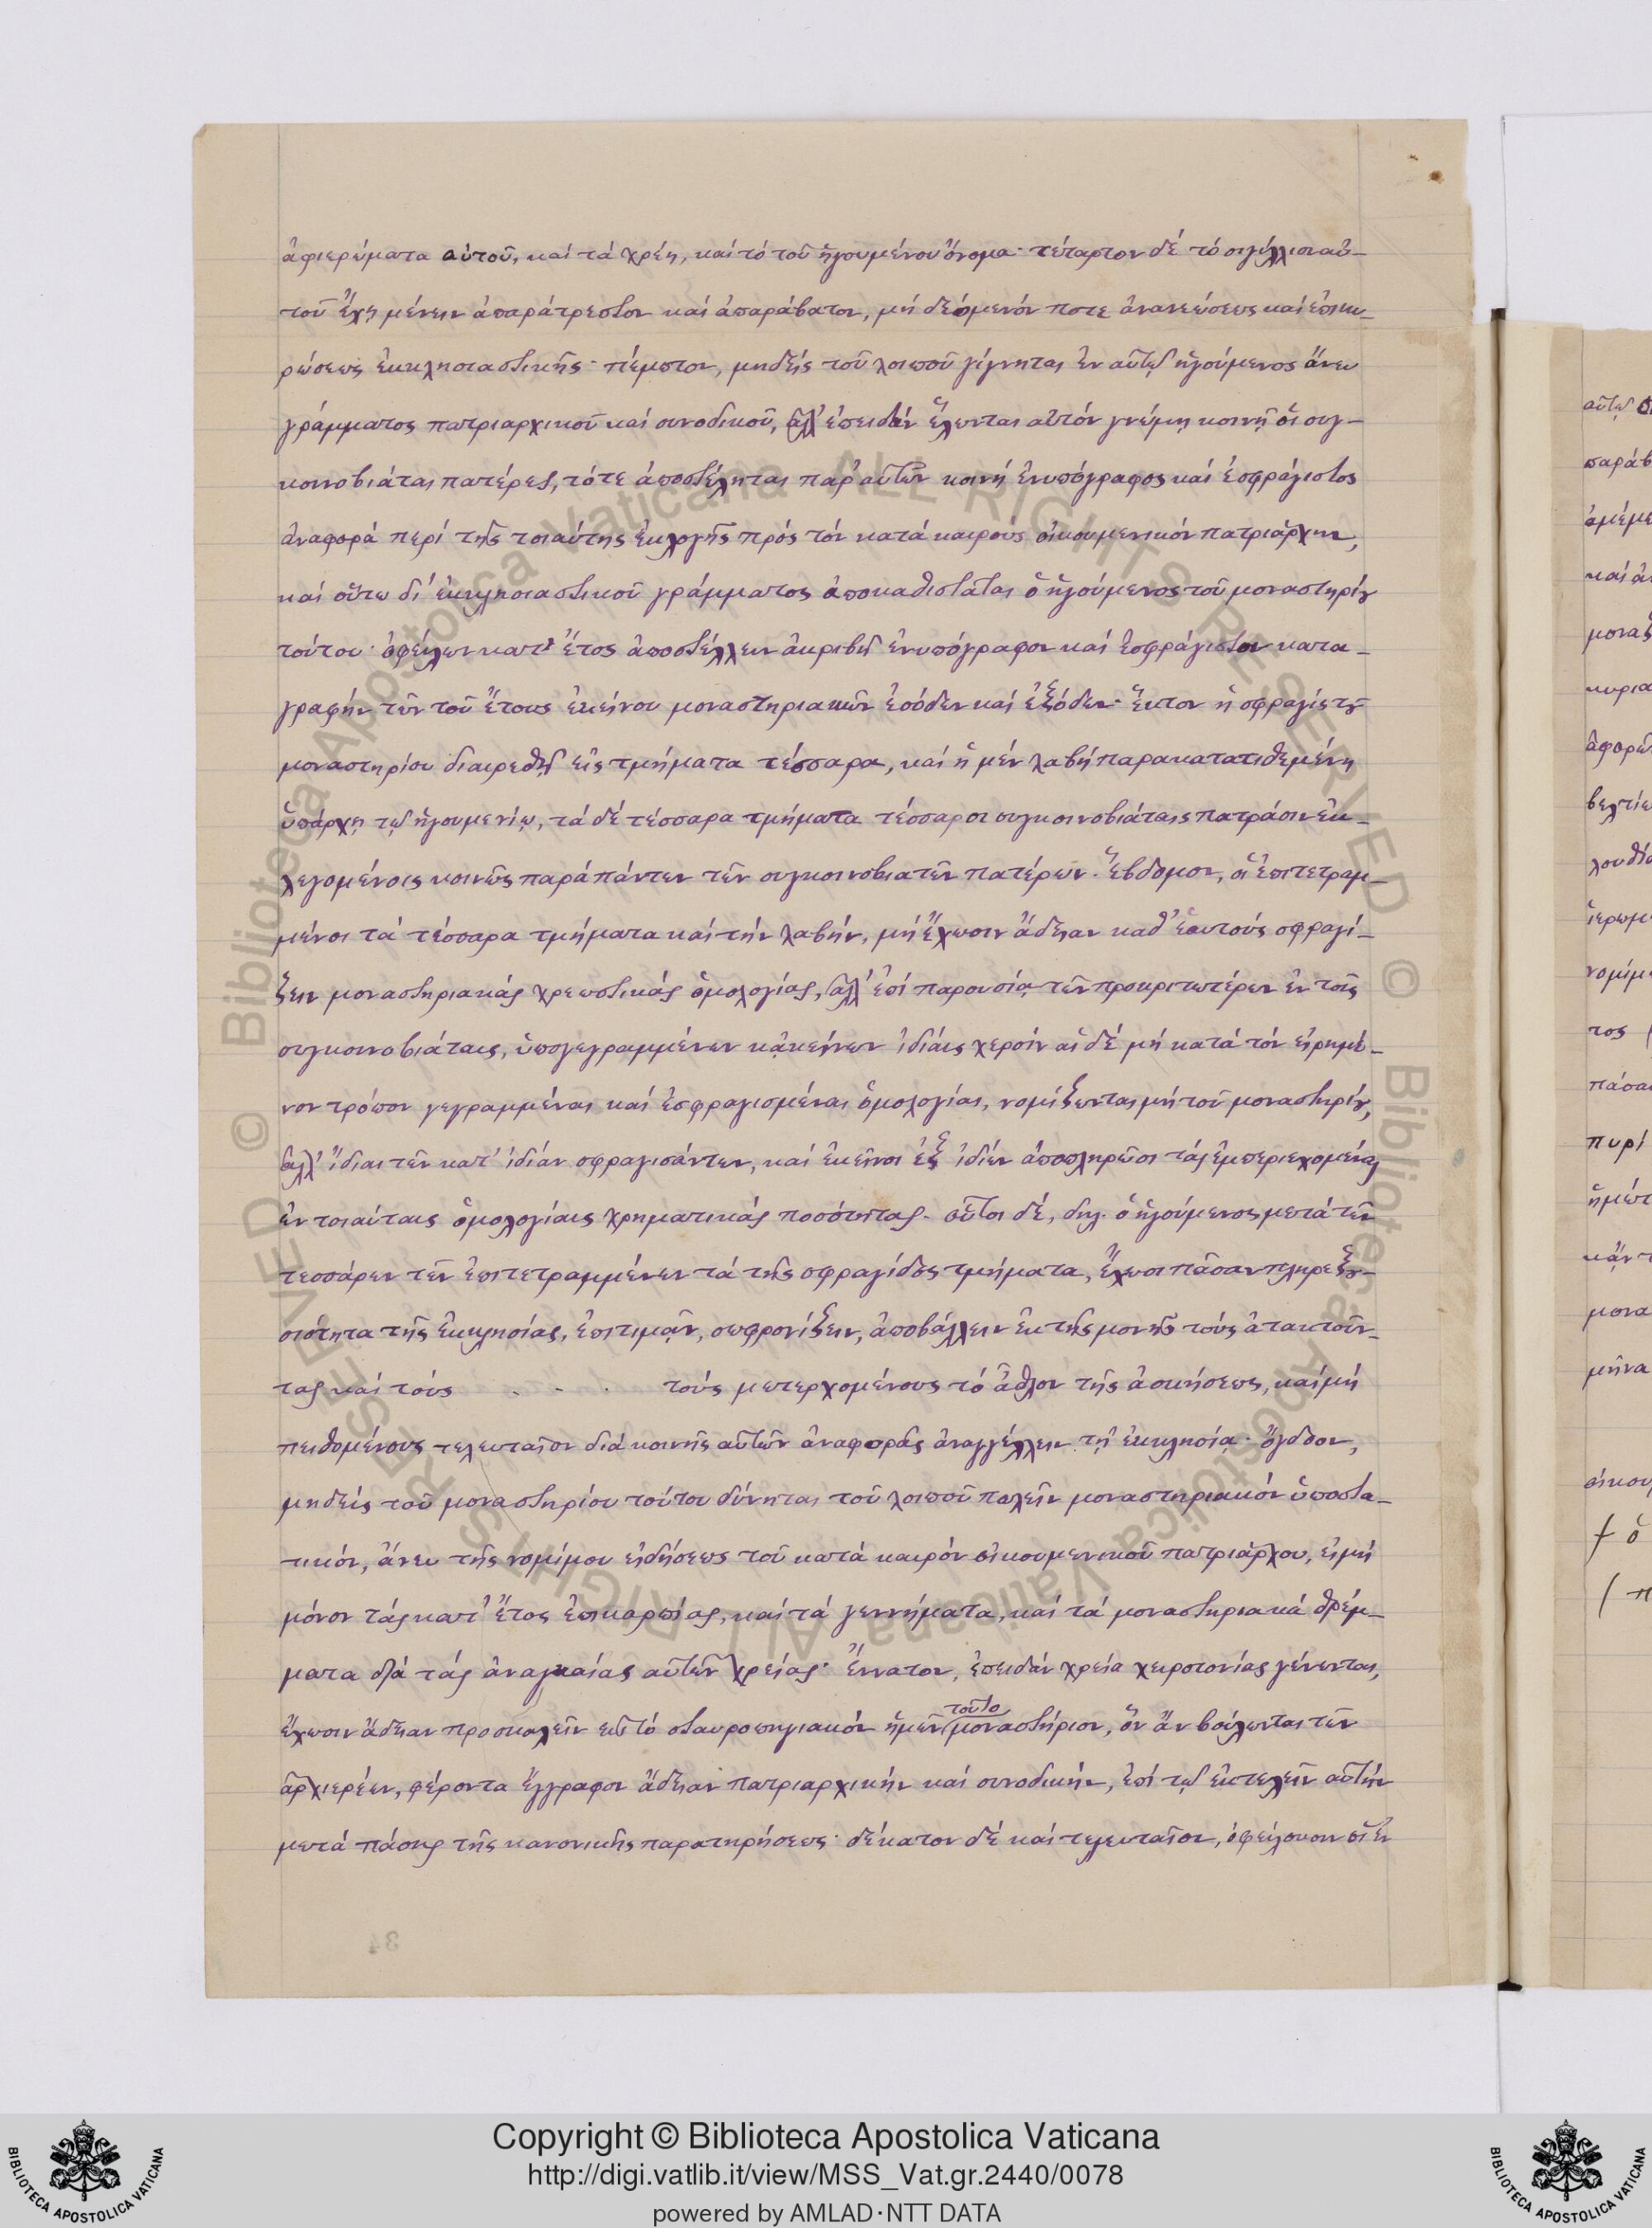 ἀφιερώματα αὐτοῦ, καί τά χρέη, καί τό τοῦ ἡγουμένου ὄνομα· τέταρτον δέ τό σιγίλλιον αὐ-
τοῦ ἔχῃ μένειν ἀπαράτρεπτον καί ἀπαράβατον, μή δεόμενόν ποτε ἀνανεώσεως καί ἐπικυ-
ρώσεως ἐκκλησιαστικῆς· πέμπτον, μηδείς τοῦ λοιποῦ γίγνηται ἐν αὐτῷ ἡγούμενος ἄνευ
γράμματος πατριαρχικοῦ καί συνοδικοῦ, ἀλλ' ἐπειδάν ἕλωνται αὐτόν γνώμῃ κοινῇ οἱ συγ-
κοινοβιάται πατέρες, τότε ἀποστέλληται παρ' αὐτῶν κοινή ἐνυπόγραφος καί ἐσφράγιστος
ἀναφορά περί τῆς τοιαύτης ἐκλογῆς πρός τόν κατά καιρούς οἰκουμενικόν πατριάρχην,
καί οὕτω δι' ἐκκλησιαστικοῦ γράμματος ἀποκαθιστᾶται ὁ ἡγούμενος τοῦ μοναστηρίου
τούτου· ὀφείλων κατ' ἔτος ἀποστέλλειν ἀκριβῆ ἐνυπόγραφον καί ἐσφράγιστον κατα-
γραφήν τῶν τοῦ ἔτους ἐκείνου μοναστηριακῶν ἐσόδων καί ἐξόδων· ἕκτον ἡ σφραγίς τοῦ
μοναστηρίου διαιρεθῇ εἰς τμήματα τέσσαρα, καί ἡ μέν λαβή παρακατατιθεμένη
ὑπάρχῃ τῷ ἡγουμενίῳ, τά δέ τέσσαρα τμήματα τέσσαρσι συγκοινοβιάταις πατράσιν ἐκ-
λεγομένοις κοινῶς παρά πάντων τῶν συγκοινοβιατῶν πατέρων· ἕβδομον, οἱ ἐπιτετραμ-
μένοι τά τέσσαρα τμήματα καί τήν λαβήν, μή ἔχωσιν ἄδειαν καθ' ἑαυτούς σφραγί-
ζειν μοναστηριακάς χρεωστικάς ὁμολογίας, ἀλλ' ἐπί παρουσίᾳ τῶν προκριτωτέρων ἐν τοῖς
συγκοινοβιάταις, ὑπογεγραμμένων κἀκείνων ἰδίαις χερσίν αἱ δέ μή κατά τόν εἰρημέ-
νον τρόπον γεγραμμέναι καί ἐσφραγισμέναι ὁμολογίαι, νομίζωνται μή τοῦ μοναστηρίου,
ἀλλ' ἴδιαι τῶν κατ' ἰδίαν σφραγισάντων, καί ἐκεῖνοι ἐξ ἰδίων ἀποπληρῶσι τάς ἐμπεριεχομένας
ἐν τοιαύταις ὁμολογίαις χρηματικάς ποσότητας. οὗτοι δέ, δηλ. ὁ ἡγούμενος μετά τῶν
τεσσάρων τῶν ἐπιτετραμμένων τά τῆς σφραγίδος τμήματα, ἔχωσι πᾶσαν πληρεξου-
σιότητα τῆς ἐκκλησίας, ἐπιτιμᾷν, σωφρονίζειν, ἀποβάλλειν ἐκ τῆς μονῆς τούς ἀτακτοῦν-
τας καί τούς . - . τούς μετερχομένους τό ἆθλον τῆς ἀσκήσεως, καί μή
πειθομένους τελευταῖον διά κοινῆς αὐτῶν ἀναφορᾶς ἀναγγέλλειν τῇ ἐκκλησίᾳ· ὄγδοον,
μηδείς τοῦ μοναστηρίου τούτου δύνηται τοῦ λοιποῦ πωλεῖν μοναστηριακόν ὑποστα-
τικόν, ἄνευ τῆς νομίμου εἰδήσεως τοῦ κατά καιρόν οἰκουμενικοῦ πατριάρχου, εἰμή
μόνον τάς κατ' ἔτος ἐπικαρπίας, καί τά γεννήματα, καί τά μοναστηριακά θρέμ-
ματα διά τάς ἀναγκαίας αὐτῶν χρείας· ἔννατον, ἐπειδάν χρεία χειροτονίας γένωνται,
ἔχωσιν ἄδειαν προσκαλεῖν εἰς τό σταυροπηγιακόν ἡμῶν τοῦτο μοναστήριον, ὅν ἄν βούλωνται τῶν
ἀρχιερέων, φέροντα ἔγγραφον ἄδειαν πατριαρχικήν καί συνοδικήν, ἐπί τῷ ἐκτελεῖν αὐτήν
μετά πάσης τῆς κανονικῆς παρατηρήσεως· δέκατον δέ καί τελευταῖον, ὀφείλουσιν οἱ ἐν
34
αὐτῷ
παράβ
ἀμέμε
καί
μονα
κυρια
ἀφορῶ
βελτίω
λουθία
ἱερωμ
νομίμ
τος
πάσα
πυρί
ἡμέτ
κἄν τ
μονα
μῆνα
οἰκου
† ὁ
( π
Copyright © Biblioteca Apostolica Vaticana
http://digi.vatlib.it/view/MSS_Vat.gr.2440/0078
powered by AMLAD·NTT DATA
BIBLIOTECA APOSTOLICA VATICANA
BIBLIOTECA APOSTOLICA VATICANA
© Biblioteca Apostolica Vaticana ALL RIGHTS RESERVED
© Biblioteca Apostolica Vaticana ALL RIGHTS RESERVED